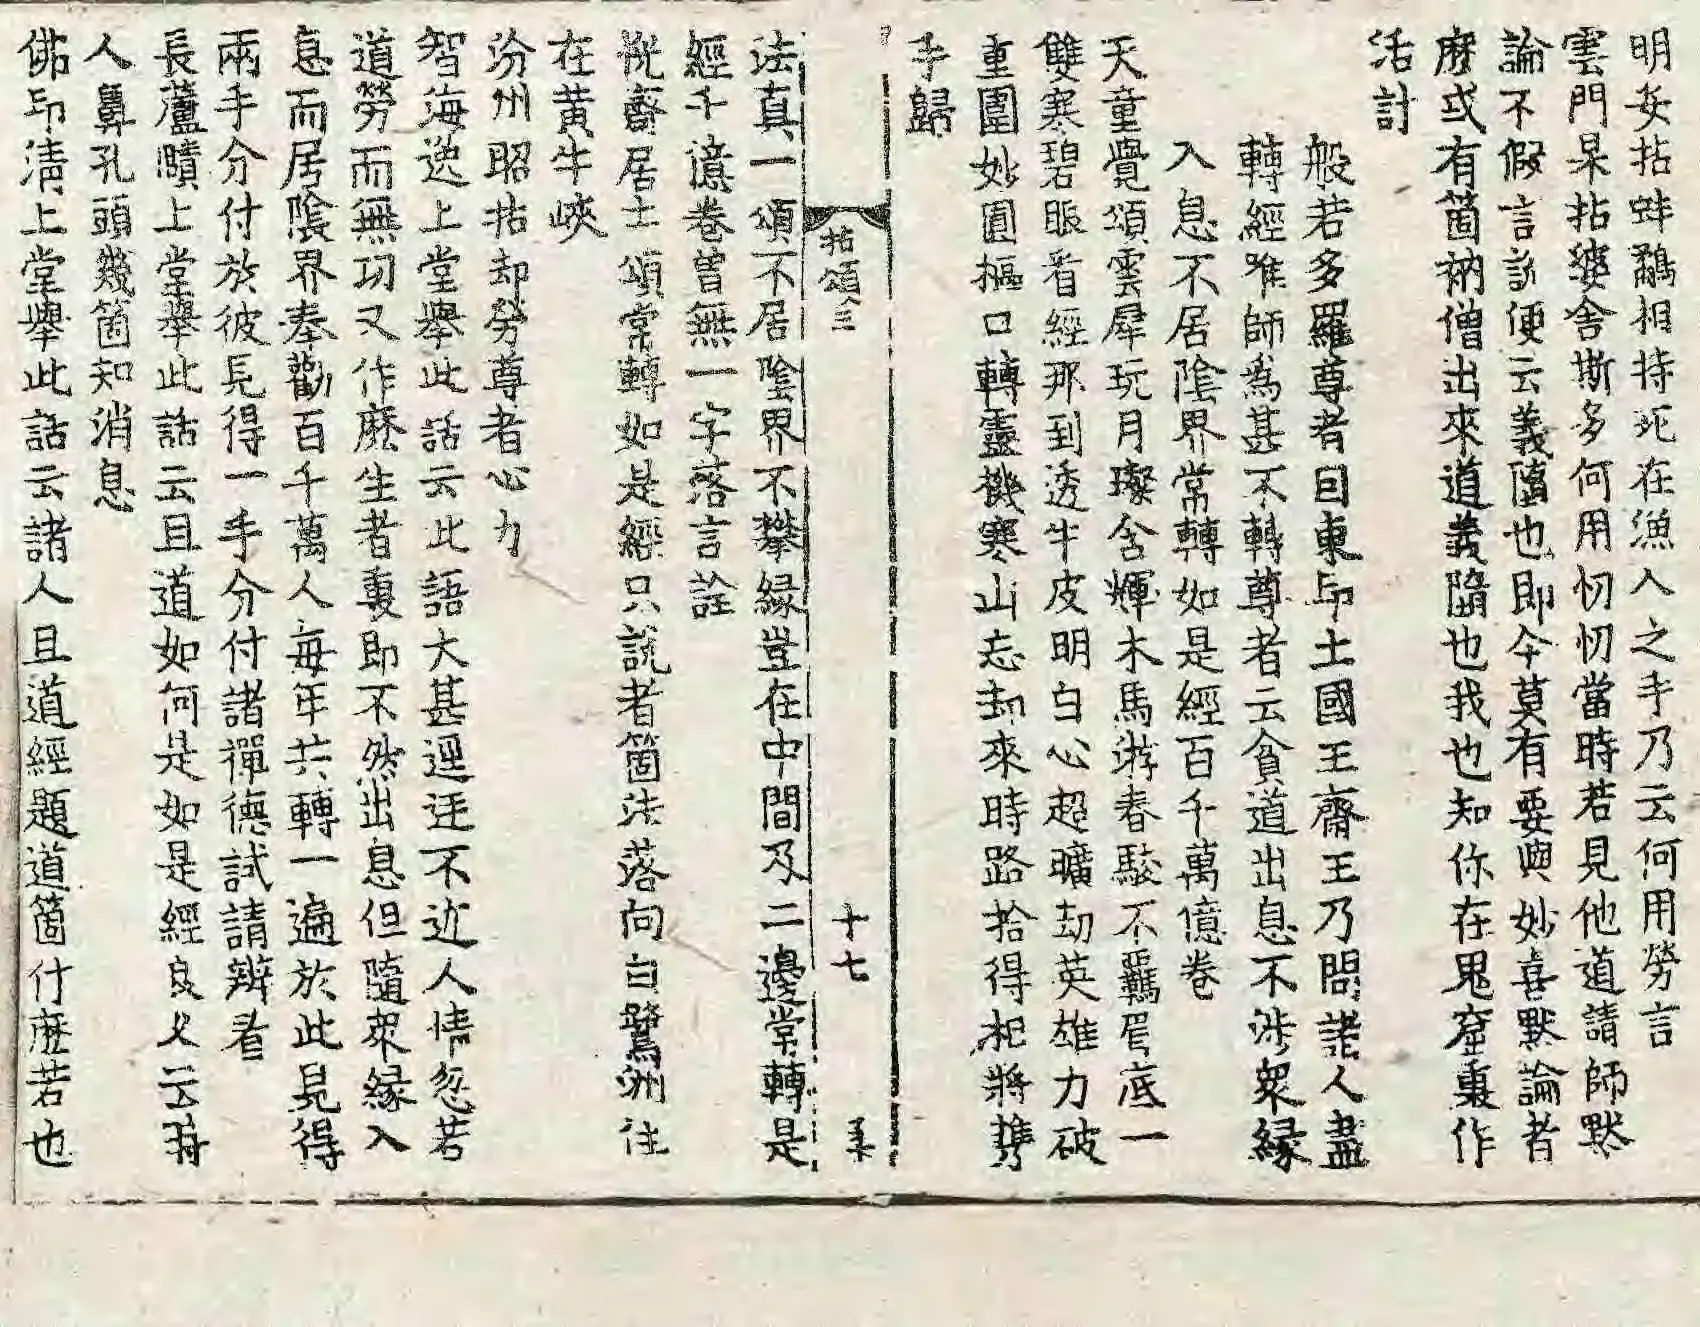 明安拈蚌鷸相持死在漁人之手乃云何用勞言
雲門杲拈婆舍斯多何用忉忉當時若見他道請師默
論不假言說便云義墮也即今莫有要與妙喜默論者
麽或有箇衲僧出來道義墮也我也知你在鬼窟裏作
活計
般若多羅尊者因東印土國王齋王乃問諸人盡
轉經唯師為甚不轉尊者云貧道出息不涉衆緣
入息不居陰界常轉如是經百千萬億卷
天童覺頌雲犀玩月璨含輝木馬游春駿不羈眉底一
雙寒碧眼看經那到透牛皮明白心超曠劫英雄力破
重圍妙圓樞口轉靈機寒山忘却來時路拾得相將携
手歸
拈頌三 十七
法真一頌不居陰界不攀緣豈在中間及二邊常轉是
經千億卷曾無一字落言詮
悅齋居士頌常轉如是經只說者箇法落向白鷺洲住
在黄牛峽
汾州昭拈却勞尊者心力
智海逸上堂擧此話云此語大甚逕迋不近人情忽若
道勞而無功又作麽生者裏即不然出息但隨衆緣入
息而居陰界奉勸百千萬人每年共轉一遍於此見得
兩手分付於彼見得一手分付諸禪德試請辨看
長蘆賾上堂擧此話云且道如何是如是經良久云時
人鼻孔頭幾箇知消息
佛印淸上堂擧此話云諸人且道經題道箇什麽若也